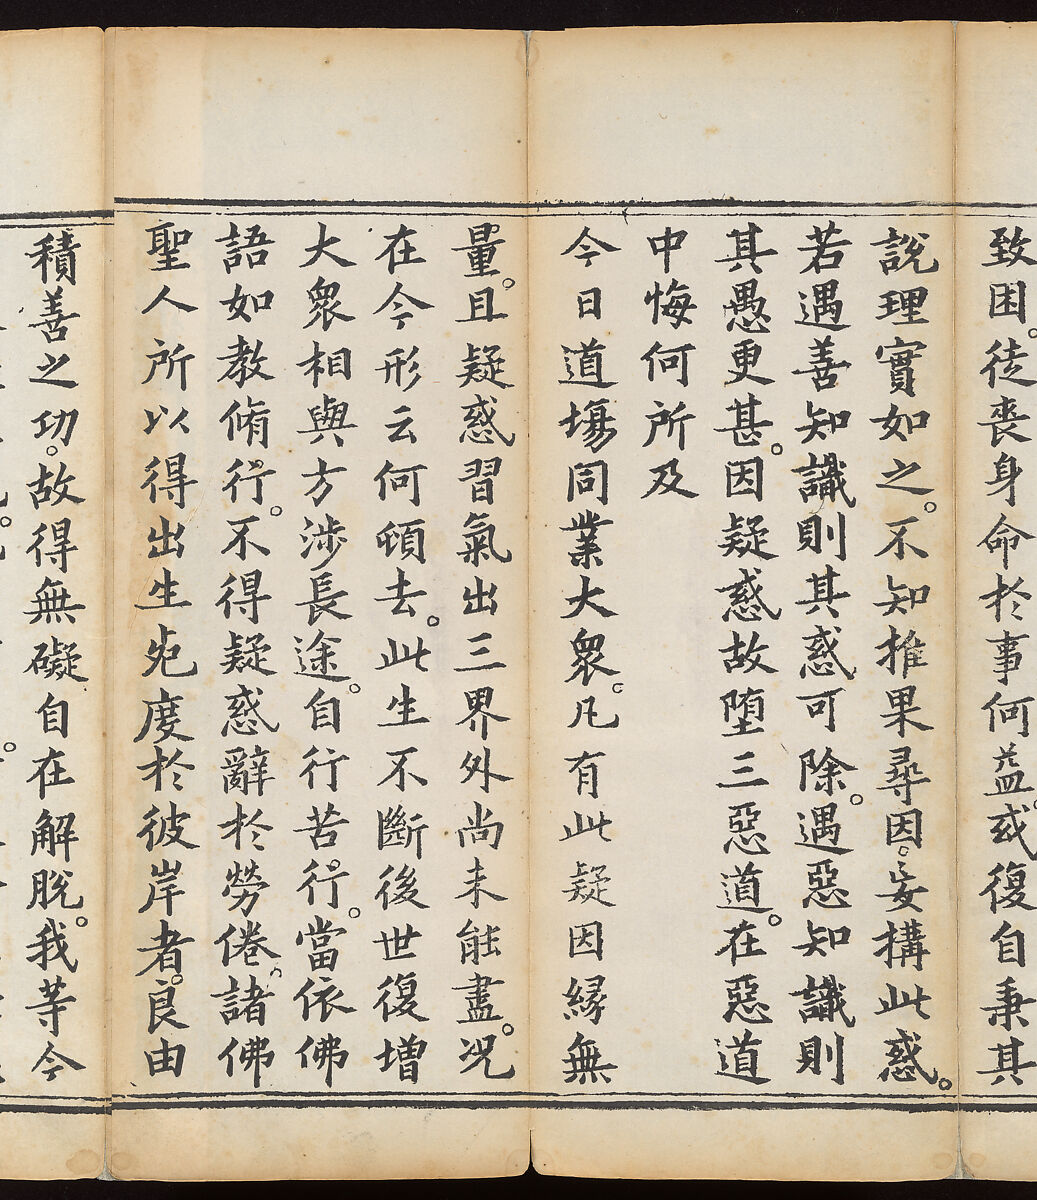 致困。徒喪身命於事何益。或復自秉其
說理實如之。不知推果尋因。妄構此惑。
若遇善知識則其惑可除。遇惡知識則
其愚更甚。因疑惑故墮三惡道。在惡道
中悔何所及
今日道場同業大眾。凡有此疑因緣無
量。且疑惑習氣出三界外尚未能盡。况
在今形云何頓去。此生不斷後世復增
大眾相與方涉長途。自行苦行。當依佛
語如教脩行。不得疑惑辭於勞倦。諸佛
聖人所以得出生死度於彼岸者。良由
積善之功。故得無礙自在解脫。我等今